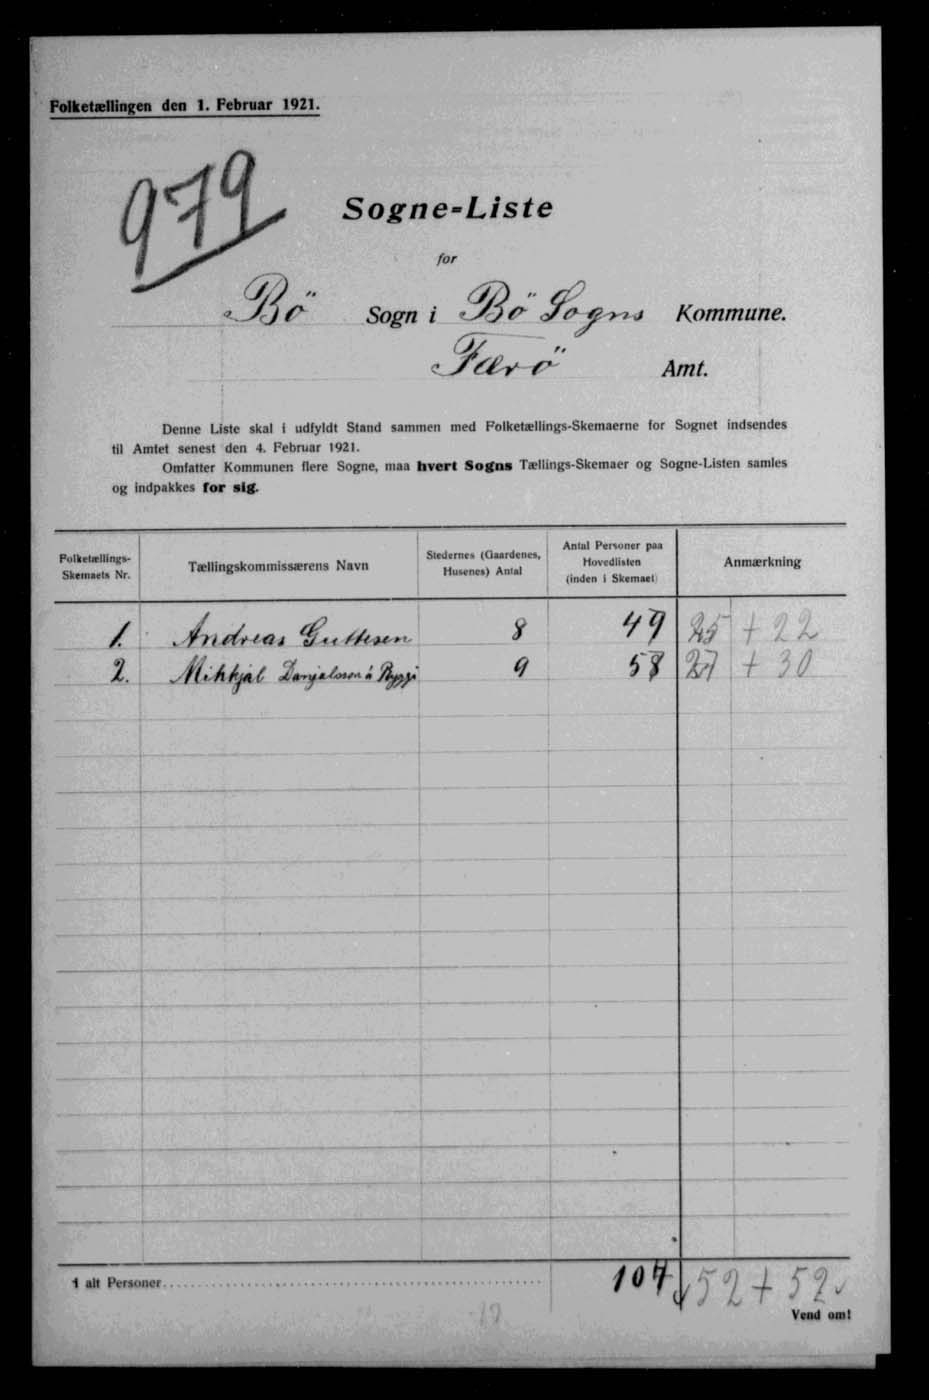 Folketællingen den 1. Februar 1921.
979
Sogne=Liste
for
Bö Sogn i Bö Sogns Kommune.
Færö Amt.
Denne Liste skal i udfyldt Stand sammen med Folketællings-Skemaerne for Sognet indsendes
til Amtet senest den 4. Februar 1921.
Omfatter Kommunen flere Sogne, maa hvert Sogns Tællings-Skemaer og Sogne-Listen samles
og indpakkes for sig.
Folketællings-
Skemaets Nr.
Tællingskommissærens Navn
Stedernes (Gaardenes,
Husenes) Antal
Antal Personer paa
Hovedlisten
(inden i Skemaet)
Anmærkning
1. Andreas Guttesen 8 + 22
2. Mikkjal Danjalsson á Ryggi 9 + 30
I alt Personer 52 + 52
Vend om!